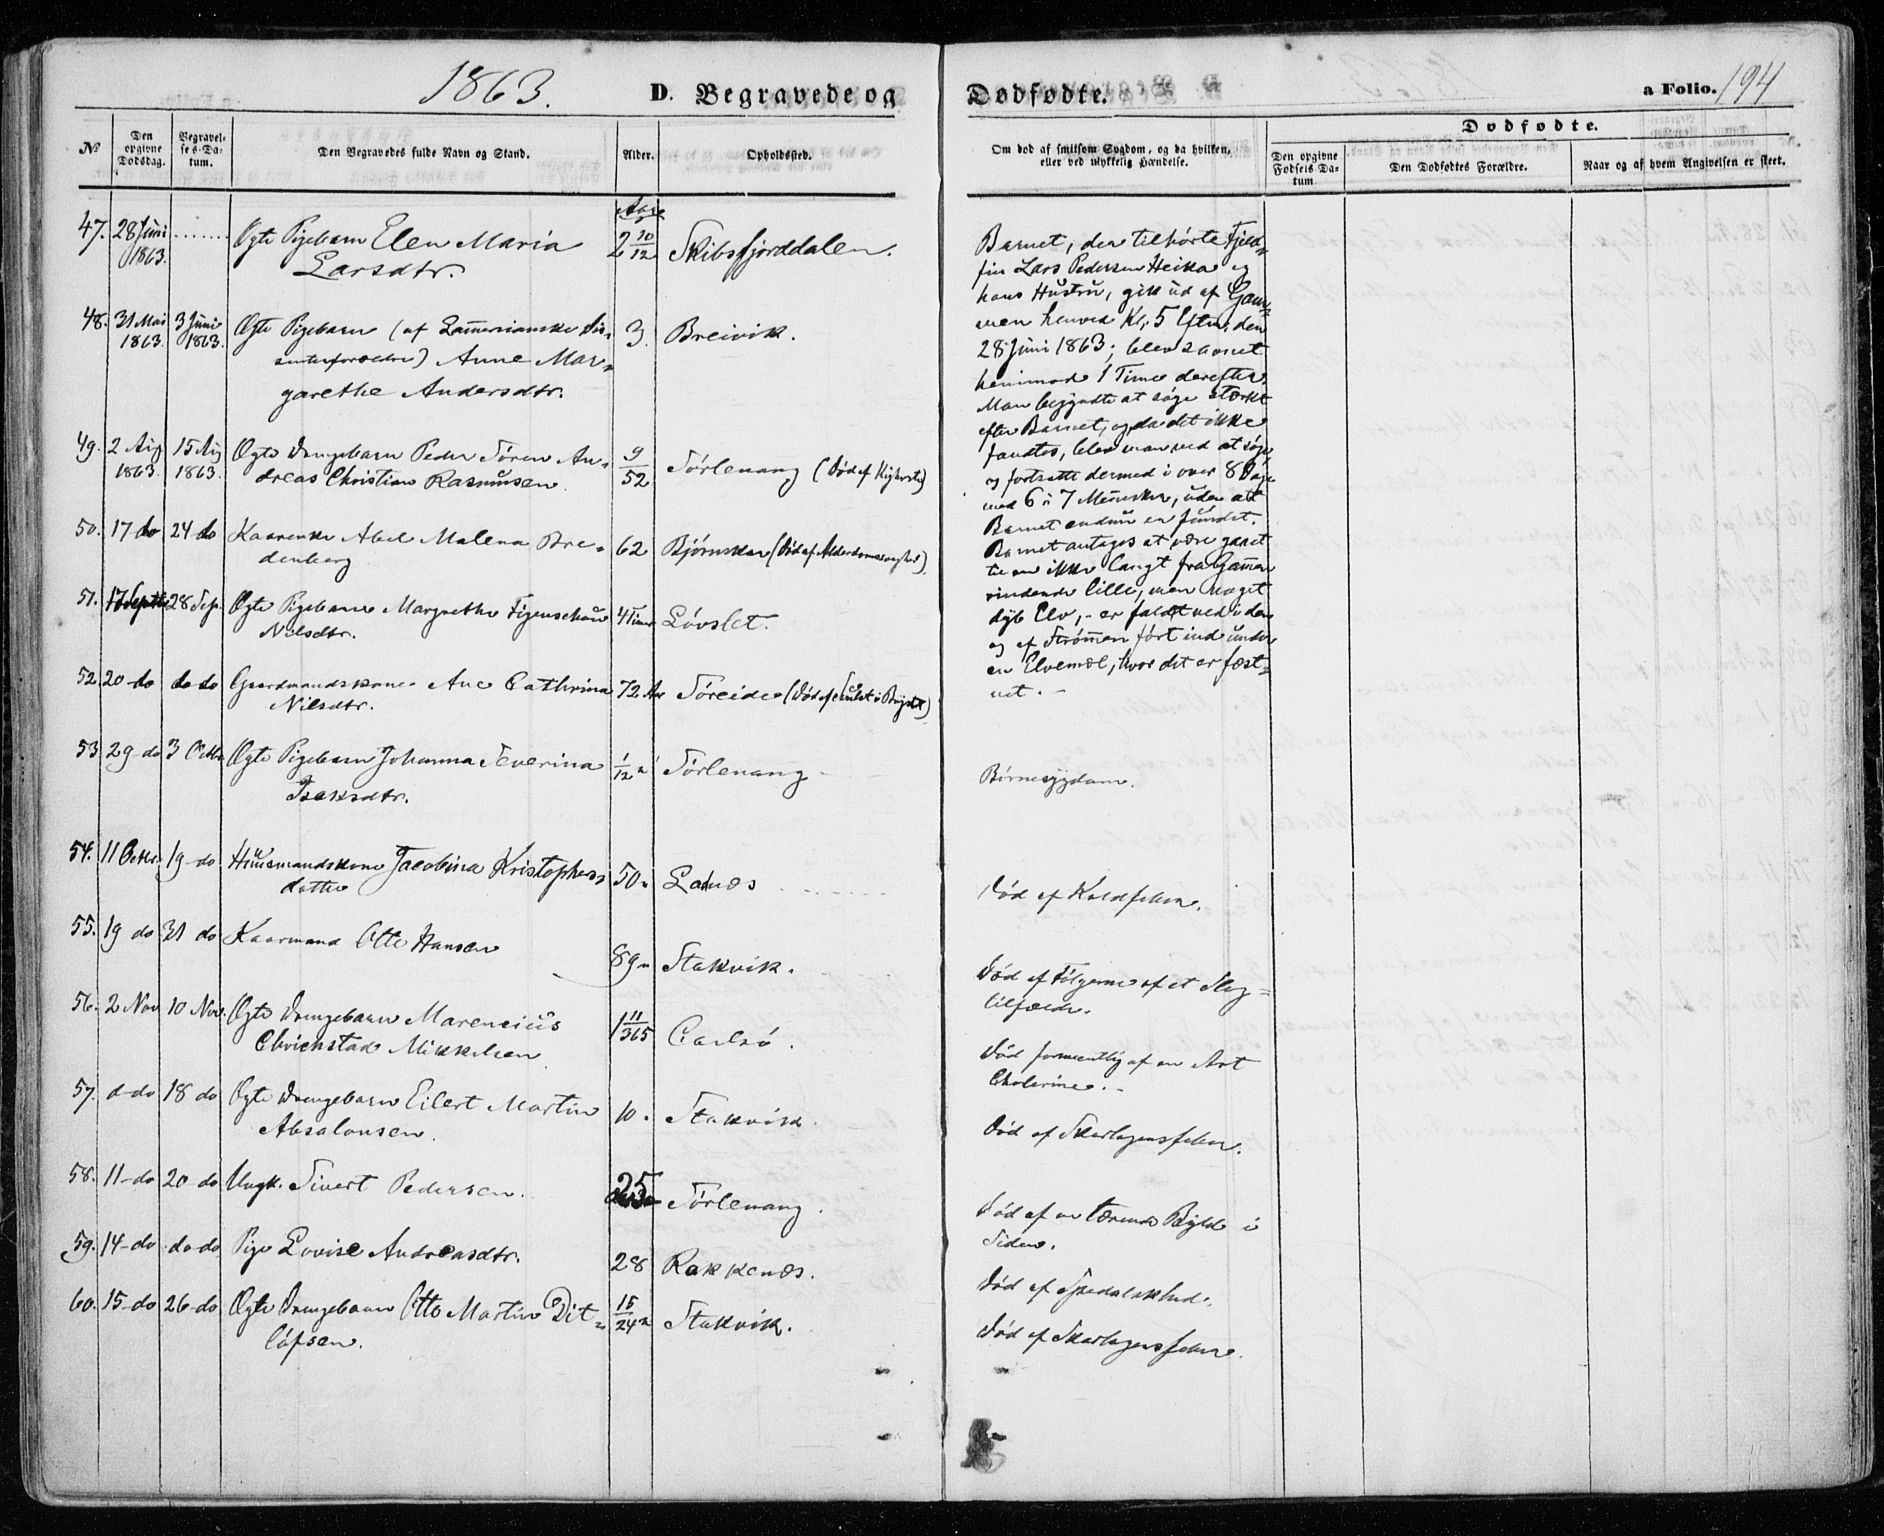 1863.
D. Begravede og
Dødfødte.
a Folio. 194
Dødfødte.
No
Den opgivne Dødsdag.
Begravelses-Datum.
Den Begravedes fulde Navn og Stand.
Alder.
Opholdssted.
Om død af smitsom Sygdom, og da hvilken, eller ved ulykkelig Hændelse.
Den opgivne Fødsels Datum
Den Dødfødtes Forældre.
Naar og af hvem Angivelsen er skeet.
47. 28 Juni 1863. ...... Ægte Pigebarn Elen Maria
Larsdtr. 2 10/12 Skibsfjorddalen.
48. 31 Mai 1863. 3 Juni 1863. Ægte Pigebarn (af Lammersianske Dis-
senterforældre) Anne Mar-
garethe Andersdtr. 3 Breivik.
49. 2 Aug 1863. 15 Aug 1863. Ægte Drengebarn Peder Søren An-
dreas Christian Rasmusen 9/52 Sørlenang (Død af Kighoste)
50. 17 do 24 do Kaarenke Abel Malena Bre-
denberg 62 Bjørnskar (Død af Alderdomssvaghed)
51. 17 Septbr 28 Sep. Ægte Pigebarn Margrethe Figenschau
Nilsdtr. 4 Timer Løvslet.
52 20 do do do Gaardmandskone Ane Cathrina
Nilsdtr. 72 Aar Søreide (Død af Sulst i Brystet)
53 29 do 3 Octbr Ægte Pigebarn Johanna Severina
Isaksdtr. 1/12 " Sørlenang
54. 11 Octbr. 19 do Huusmandskone Jacobina Kristophers-
datter 50 " Lanæs
55. 19 do 31 do Kaarmand Otte Hansen 89 " Stakvik.
56. 2 Nov 10 Nov. Ægte Drengebarn Marencius
Mikkelsen 1 11/365 Carlsø.
57. d do 18 do Ægte Drengebarn Eilert Martin
Absalonsen. 10 " Stakvik.
58. 11 do 20 do Ungk. Sivert Pedersen. 25 Sørlenang.
59. 14 do do do Pige Lovise Andreasdtr. 28 Rakkenæs.
60. 15 do 26 do Ægte Drengebarn Otto Martin Dit-
løfsen. 15/24 " Stakvik.
Barnet, der tilhørte Fjeld-
fin Lars Pedersen Heika og
hans Hustru, gik ud af Gam-
men henved Kl. 5 Eftm. den
28 Juni 1863; blev savnet
henimod 1 Time derefter.
Man begyndte at søge stærkt
efter Barnet, og da det ikke
fandtes, blev man ved at søge,
og fortsatte dermed i over 8 Dage
med 6 a 7 Mennesker, uden at
Barnet endnu er fundet.
Barnet antages at være gaaet
til en ikke langt fra Gammen
rindende lille, men meget
dyb Elv, - er faldt ned i den
og af Strømmen ført ind under
en Elvemæl, hvor det er fæst-
net. -
Børnesygdom.
Død af Koldfeber.
Død af Følgerne af et Slag-
tilfælde.
Død formentlig af en Art
Cholerine. -
Død af Skarlagensfeber.
Død af en tærende Byld i
Siden.
Død af Spedalskhed.
Død af Skarlagensfeber.